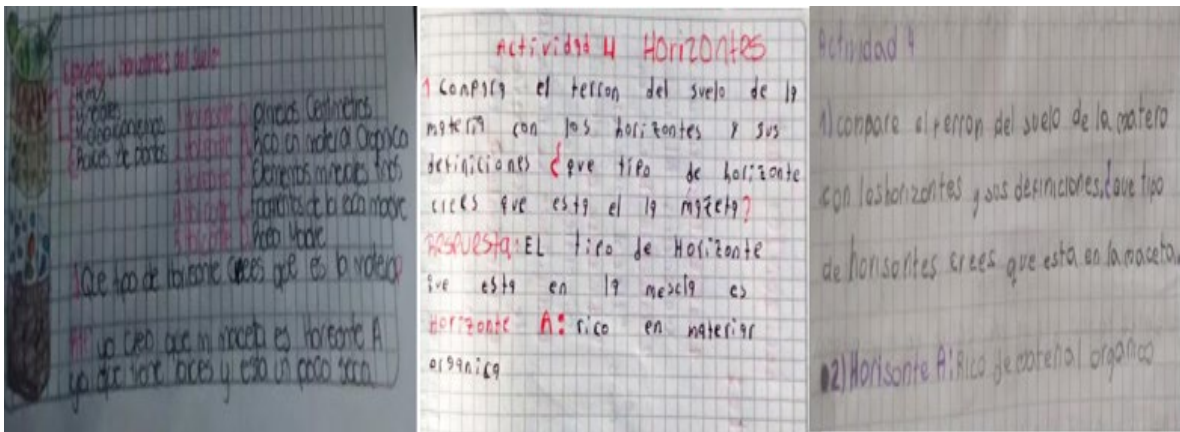 horizontes del suelo
Raíces de plantas
1 Horizonte O: primeros Centimetros
2 Horizonte A: Rico en material Organico
3 Horizonte B: Elementos minerales finos
4 Horizonte C: fragmentos de la roca madre
5 Horizonte D: Roca Madre
¿Que tipo de Horisonte Crees que es la
R// yo creo que mi maceta es Horisonte A
ya que tiene raices y esta un poco seca
Actividad 4 Horizontes
1 Compara el terron del suelo de la
materia con los horizontes y sus
definiciones ¿que tipo de horizonte
crees que esta el la maceta?
Respuesta: EL tipo de Horizonte
que esta en la mescla es
Horizonte A: rico en materiar
organica
Actividad 4
1) compare el perron del suelo de la matero
con los horizontes y sus definiciones,¿que tipo
de horisontes crees que esta en la maceta.
2) Horisonte A: Rico de material organico